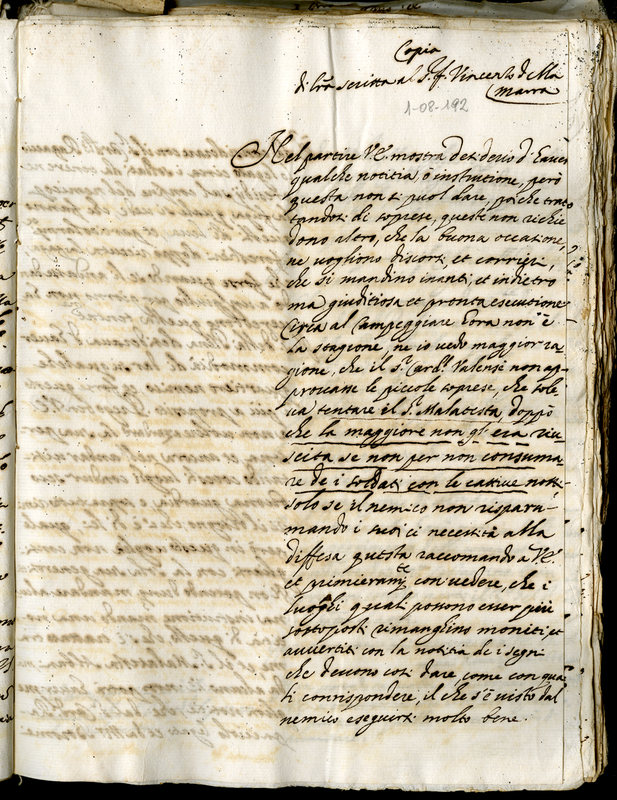 Copia
di lra scritta al S.r f. Vincenzo della
Marra
1-08-192
Nel partire V.E. mostra desiderio d'haver
qualche notitia ò instrutione, però
questa non si puol dare, poiche trat
tandosi di soprese, queste non richie
dono altro, che la buona occasione,
ne vogliono discorsi, et corrieri,
che si mandino inanti, et indietro
ma giuditiosa et pronta esecutione
Circa al Campeggiare hora non è
la stagione, ne io vedo maggior ra
gione, che il S.r Card.l Valensè non ap-
provasse le piccole soprese, che sole
va tentare il S.r Malatesta doppò
che la maggiore non gl'era riu
scita se non per non consuma
re de i soldati con le cattive notti
solo se il nemico non rispara-
mando i suoi ci necessità alla
diffesa questa raccomando a V.E.
et primieram.te con vedere, che i
luoghi quali possono esser più
sottoposti rimanghino moniti, et
avvertiti con la notitia de i segni
che devono così dare come con qua
li corrispondere, il che s'è visto dal
nemico eseguirsi molto bene.